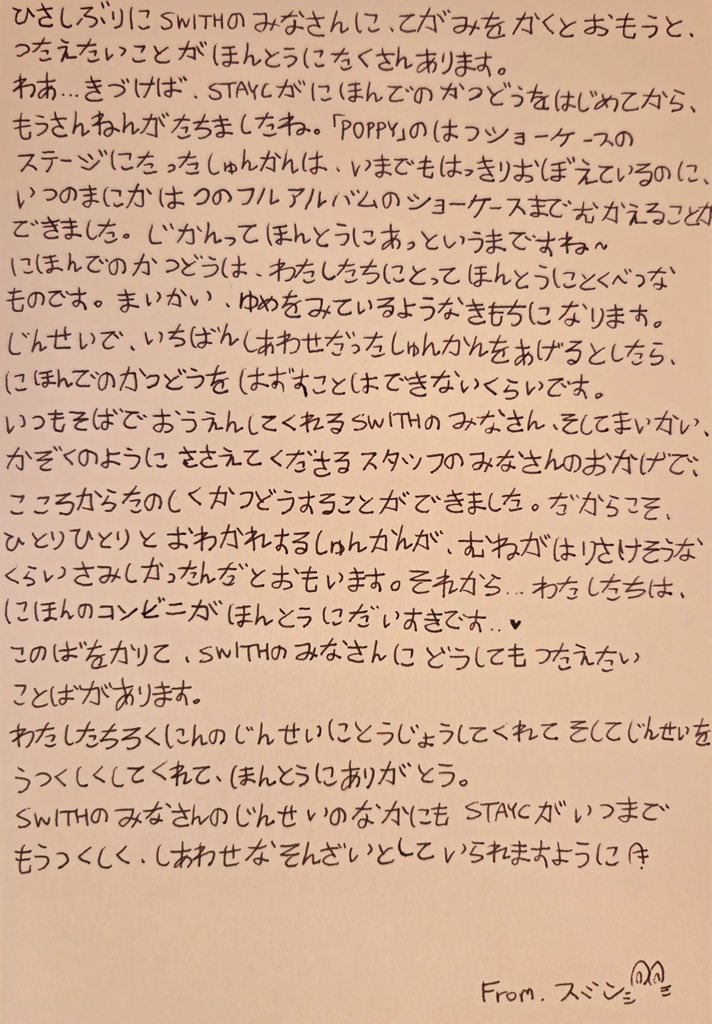 ひさしぶりに SWITHの みなさんに、てがみを かくと おもうと、
つたえたいことが ほんとうに たくさん あります。
わあ…きづけば、STAYCが にほんでの かつどうを はじめてから、
もうさんねんが たちましたね。「POPPY」の はつショーケースの
ステージに たった しゅんかんは、いまでも はっきりおぼえているのに、
いつのまにか はつの フル アルバムの ショーケースまで むかえることが
できました。じかんって ほんとうに あっというまですね〜
にほんでの かつどうは、わたしたちにとって ほんとうに とくべつな
ものです。まいかい、ゆめを みているような きもちに なります。
じんせいで、いちばん しあわせだった しゅんかんを あげるとしたら、
にほんでの かつどうを はずすことは できないくらいです。
いつもそばで おうえんしてくれる SWITHの みなさん、そして まいかい、
かぞくのように ささえて くださる スタッフの みなさんの おかげで、
こころから たのしく かつどうすることが できました。だからこそ、
ひとりひとりと おわかれする しゅんかんが、むねが はりさけそうな
くらい さみしかったんだと おもいます。それから…わたしたちは、
にほんの コンビニが ほんとうに だいすきです..♥
このばを かりて、SWITHの みなさんに どうしても つたえたい
ことばが あります。
わたしたちろくにんの じんせいに とうじょうしてくれて そして じんせいを
うつくしくしてくれて、ほんとうに ありがとう。
SWITHの みなさんの じんせいの なかにも STAYCが いつまで
もうつくしく、しあわせな そんざいとして いられますように
From. スミン